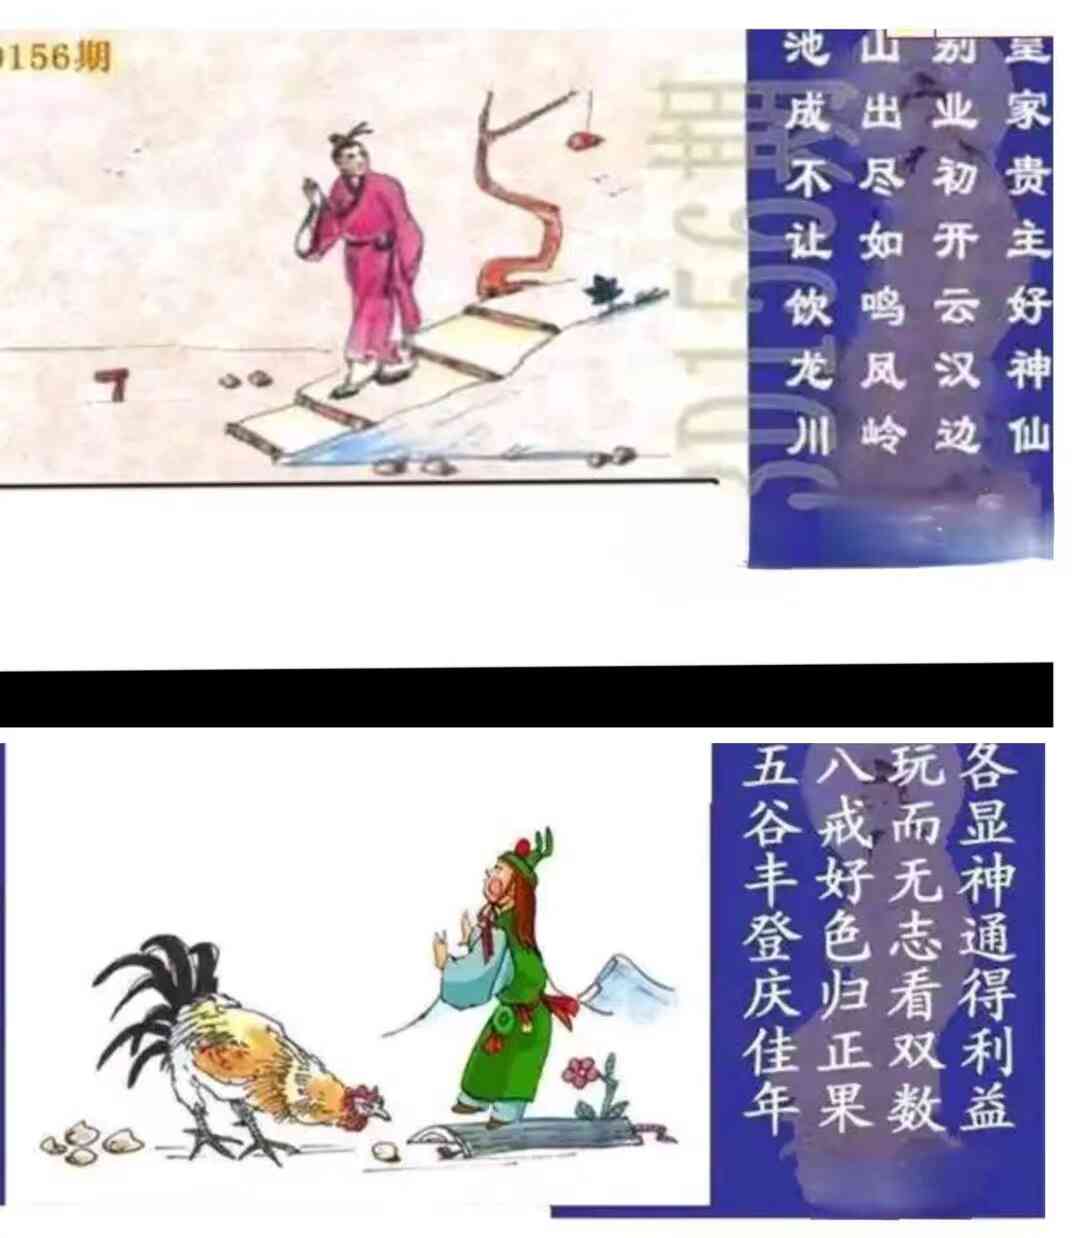 0156期
皇家贵主好神仙
别业初开云汉边
山出尽如鸣凤岭
池成不让饮龙川
7
各显神通得利益
玩而无志看双数
八戒好色归正果
五谷丰登庆佳年